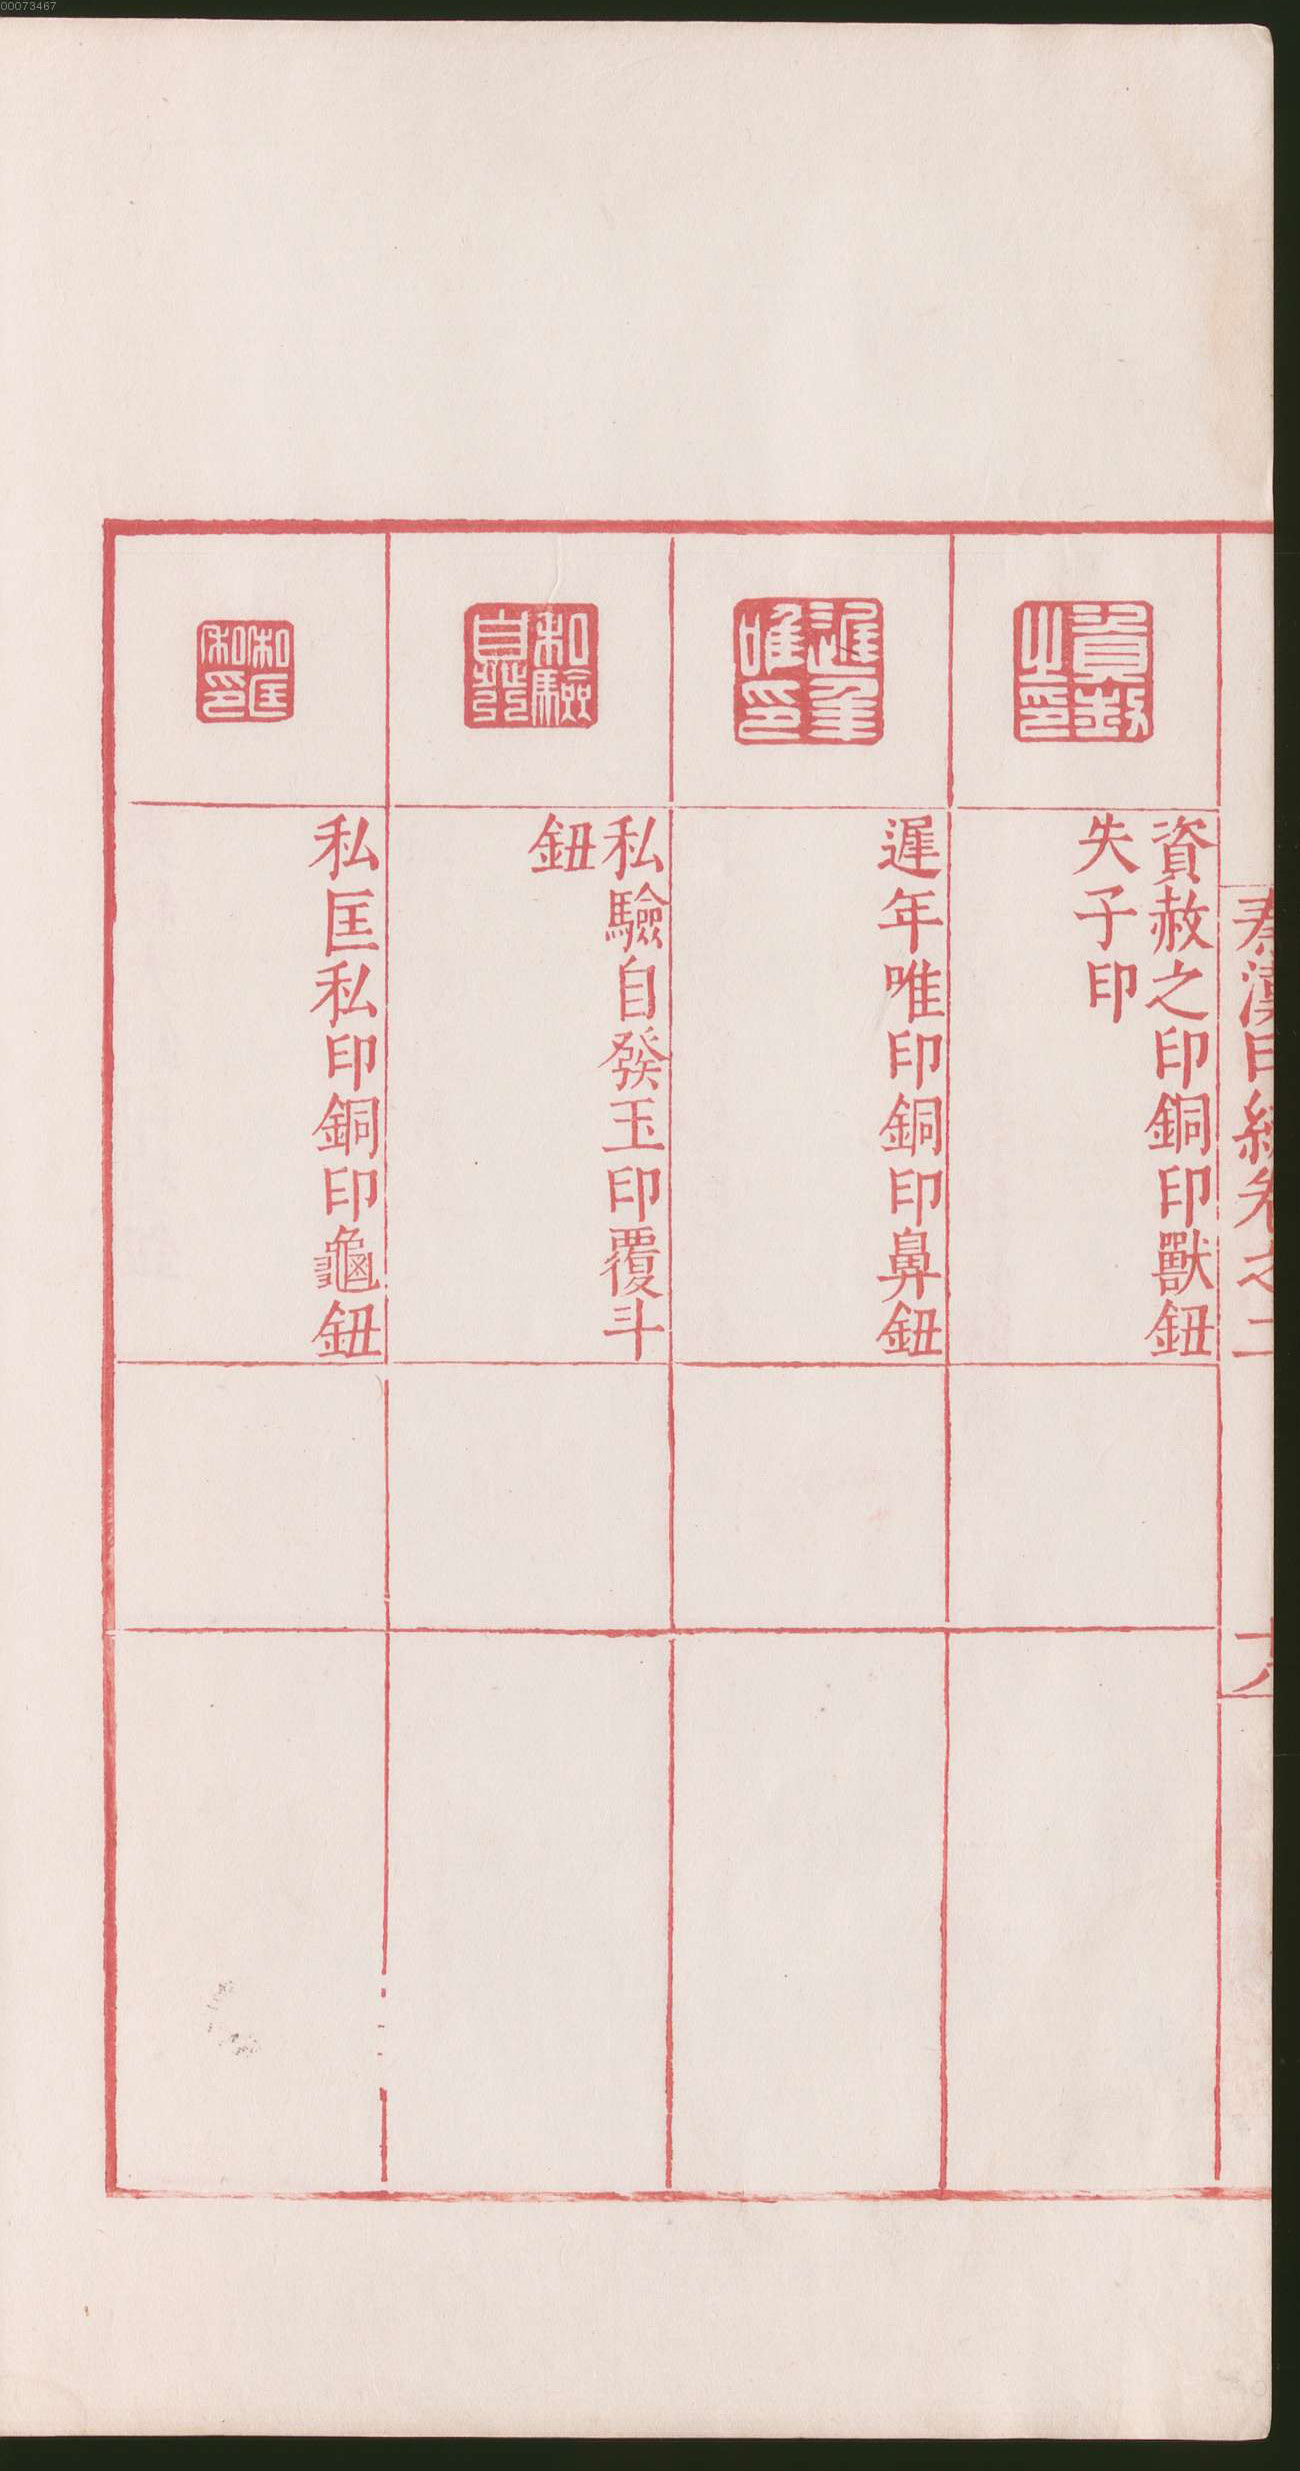 00073467
秦漢印統卷之二
資赦之印銅印獸鈕
失子印
遲年唯印銅印鼻鈕
私驗自發玉印覆斗
鈕
私匡私印銅印龜鈕